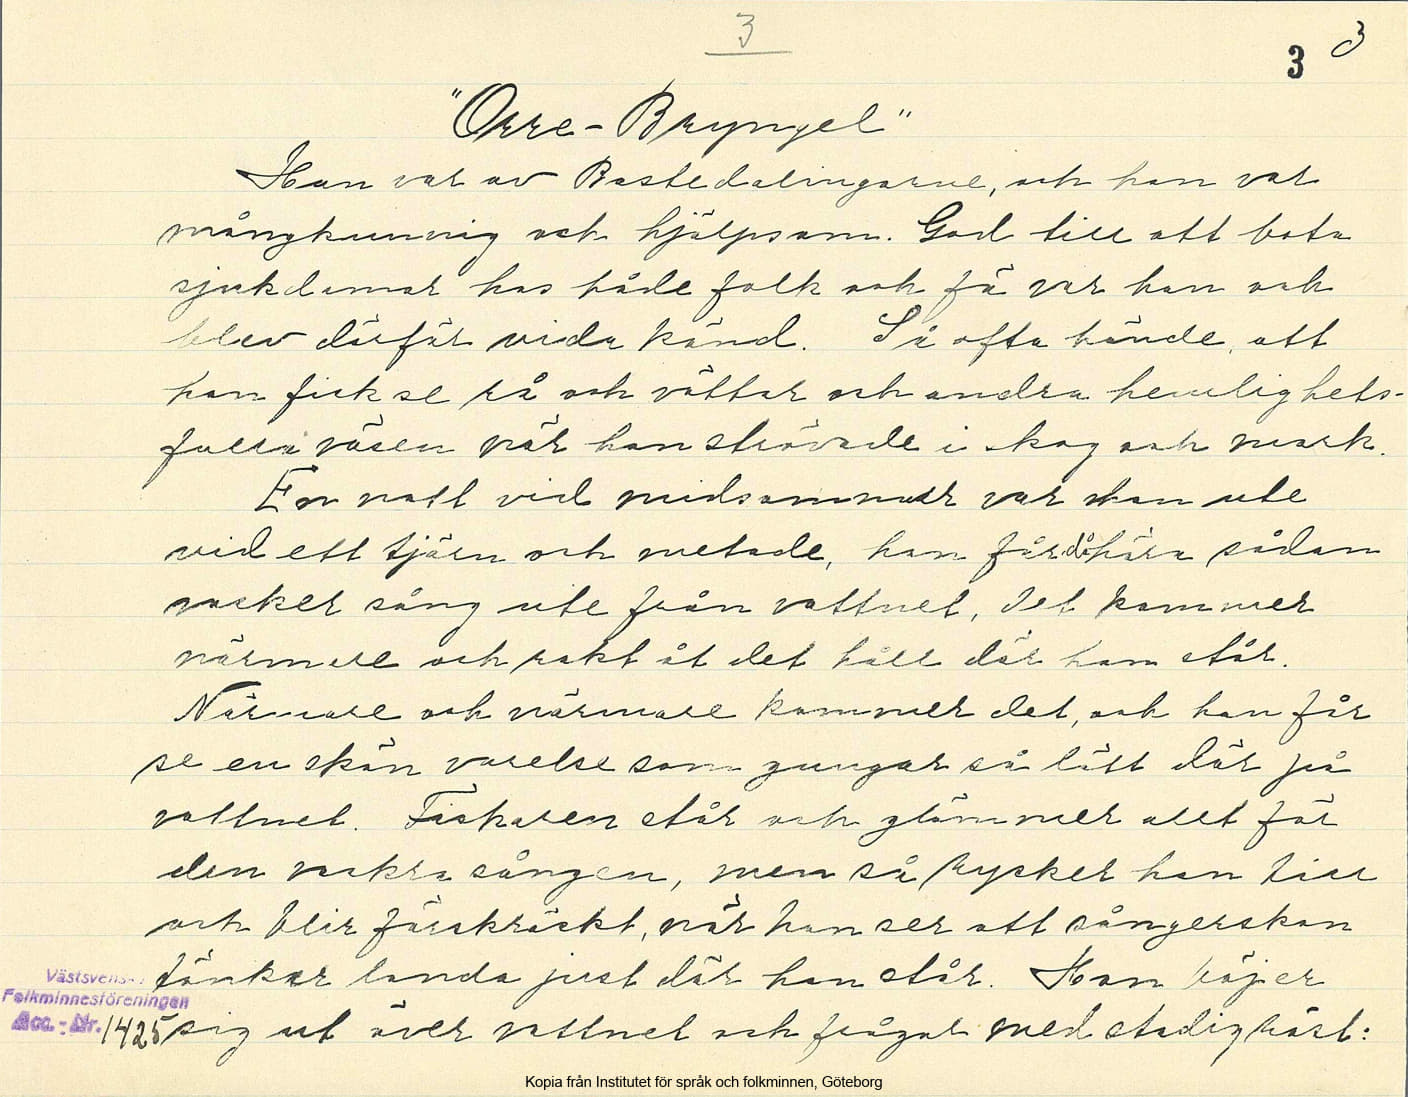 3
3 3
"Orre-Bryngel"
Han var av Bastedalingarne, och han var
mångkunnig och hjälpsam. God till att bota
sjukdomar hos både folk och fä var han och
blev därför vida känd. Så ofta hände, att
han fick se rå och vättar och andra hemlighets-
fulla väsen när han strövade i skog och mark.
En natt vid midsommar var han ute
vid ett tjärn och metade, han får då höra sådan
vacker sång ute från vattnet, det kommer
närmare och rakt åt det håll där han står.
Närmare och närmare kommer det, och han får
se en skön varelse som gungar så lätt där på
vattnet. Fiskaren står och glömmer allt för
den vackra sången, men så rycker han till
och blir förskräckt, när han ser att sångerskan
tänker landa just där han står. Han böjer
sig ut över vattnet och frågar med stadig röst:
Västsvens
Folkminnesföreningen
Acc.-Nr. 1425
Kopia från Institutet för språk och folkminnen, Göteborg